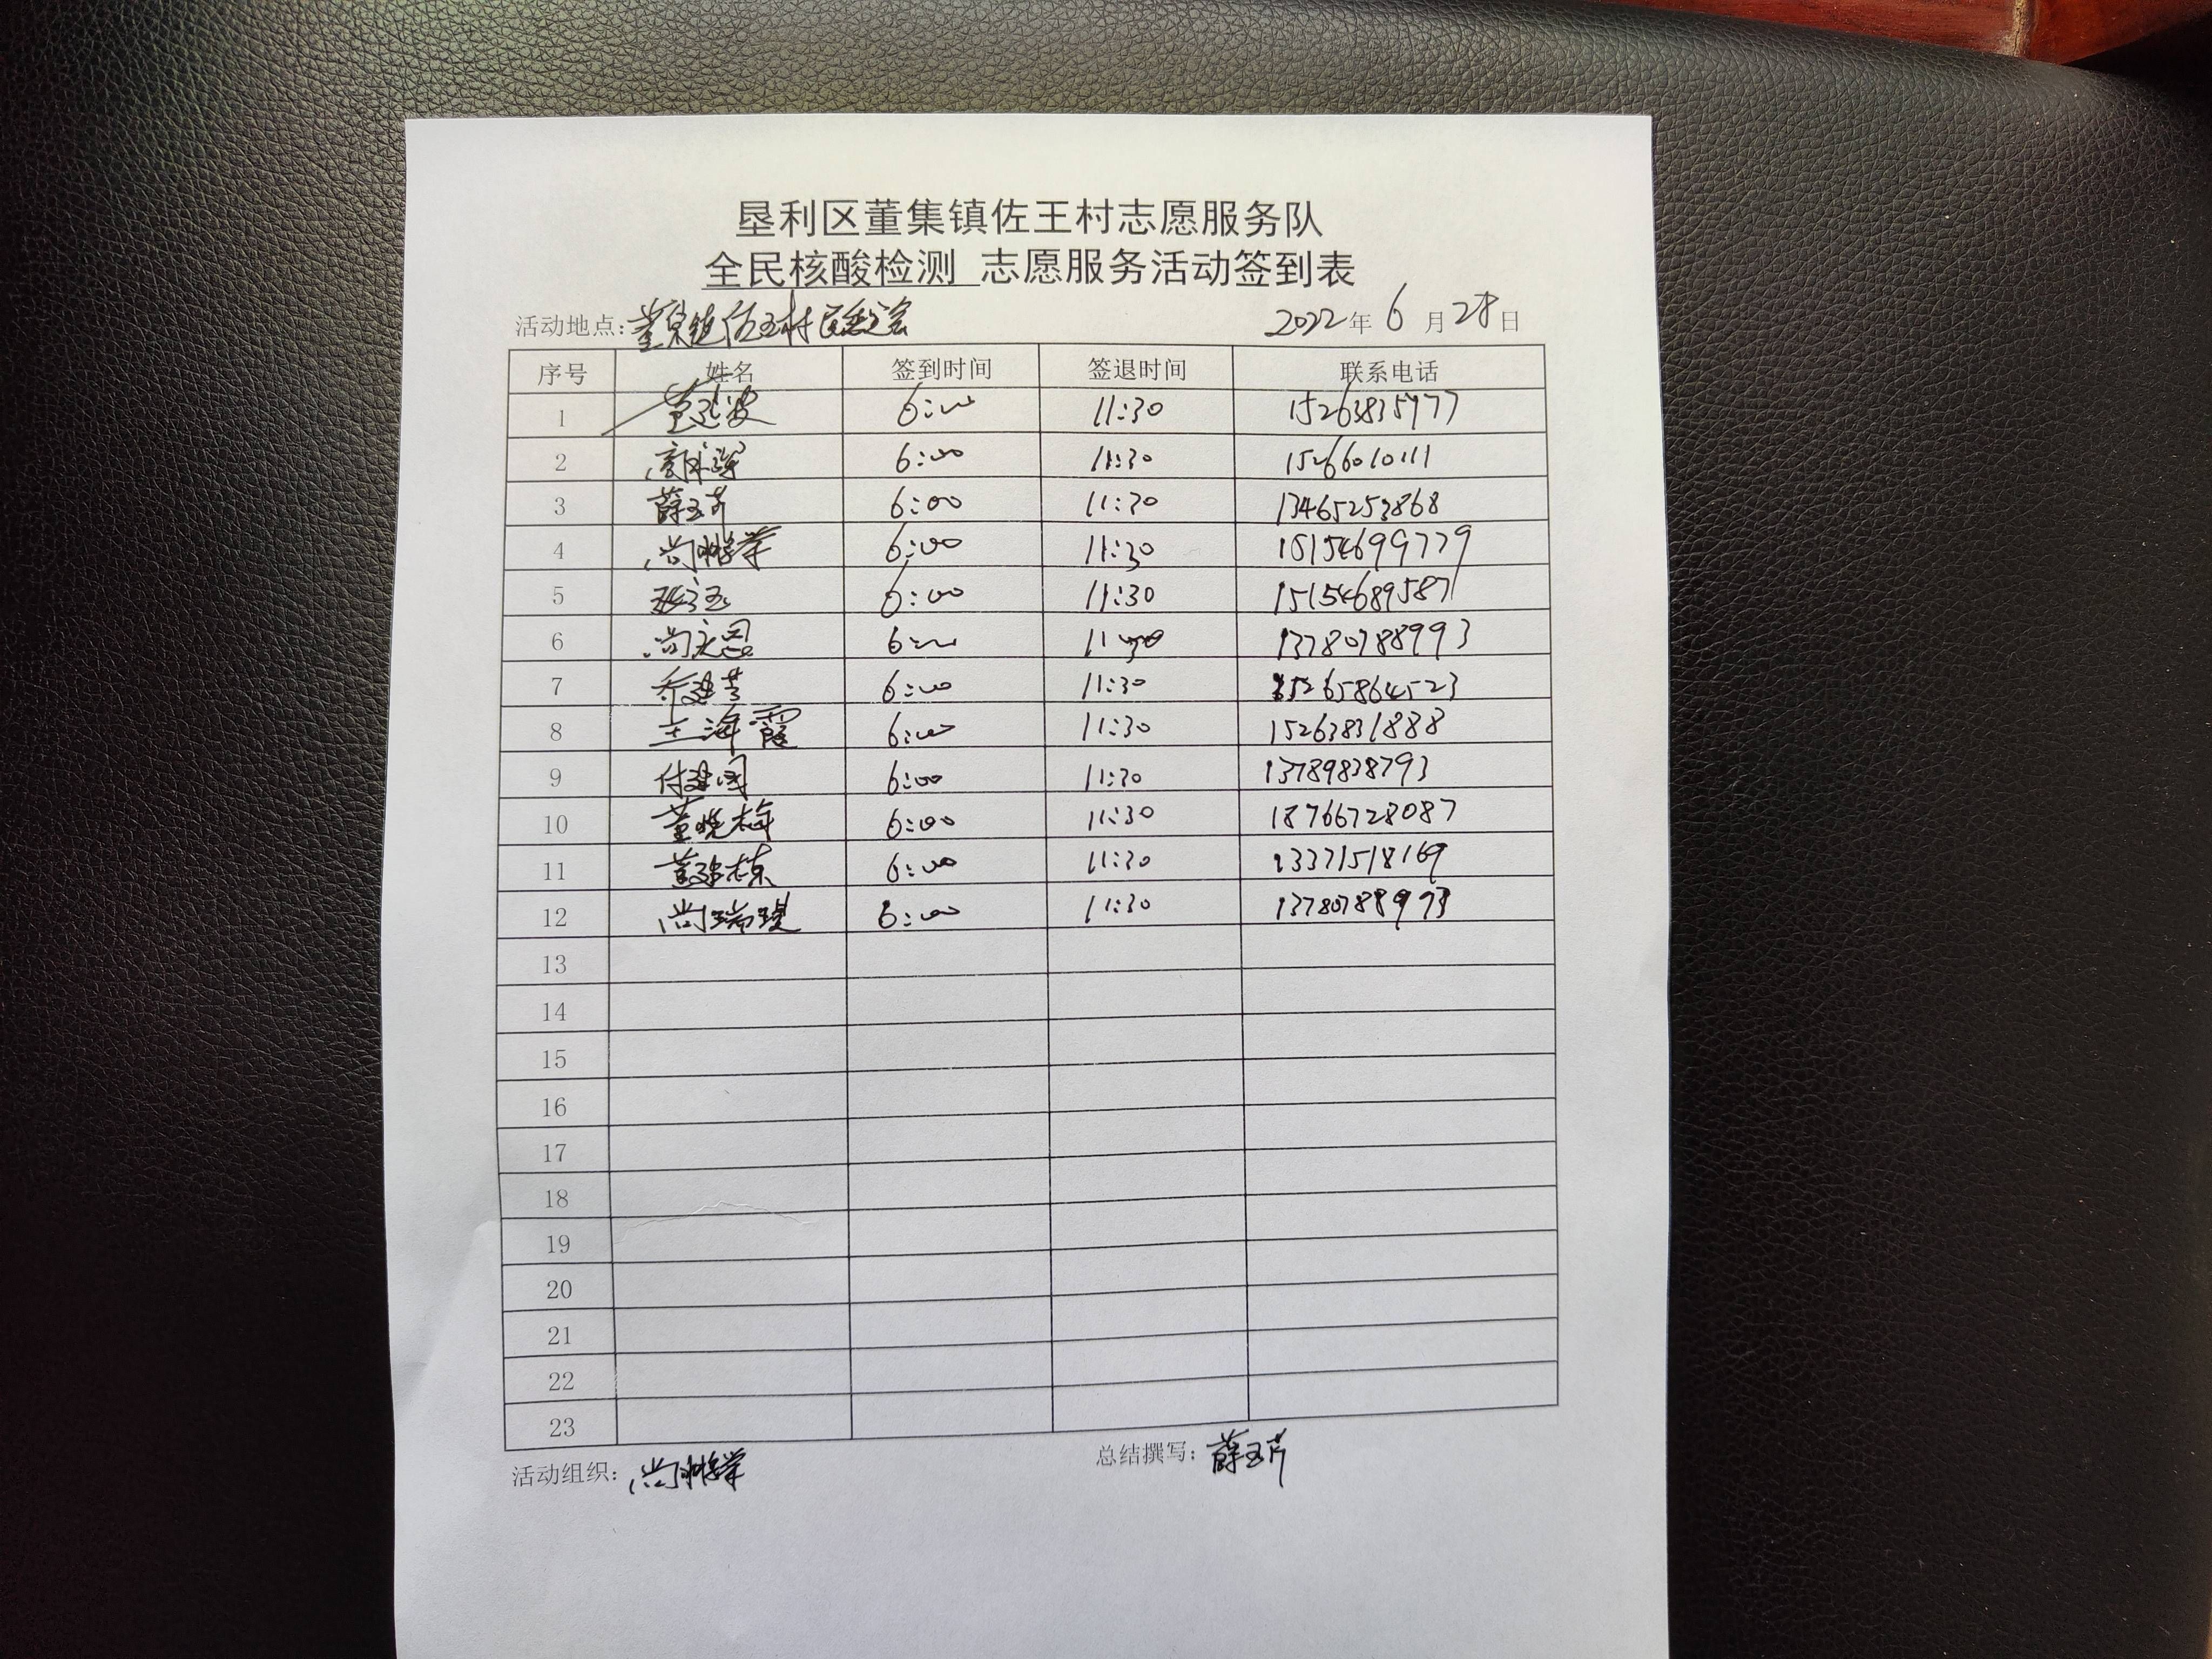 垦利区董集镇佐王村志愿服务队
全民核酸检测 志愿服务活动签到表
活动地点：董集镇佐王村民委会 2022年6月28日
序号 姓名 签到时间 签退时间 联系电话
1 6:00 11:30 15263835777
2 6:00 11:30 15266010111
3 薛玉芹 6:00 11:30 13465253868
4 尚 6:00 11:30 15154699779
5 6:00 11:30 15154689587
6 尚 6:00 11:30 13780788993
7 6:00 11:30 15265864523
8 王海霞 6:00 11:30 15263831888
9 付建国 6:00 11:30 13789838793
10 董晓梅 6:00 11:30 18766728087
11 董 6:00 11:30 13371518169
12 尚瑞琪 6:00 11:30
13
14
15
16
17
18
19
20
21
22
23
活动组织：尚 总结撰写：薛玉芹